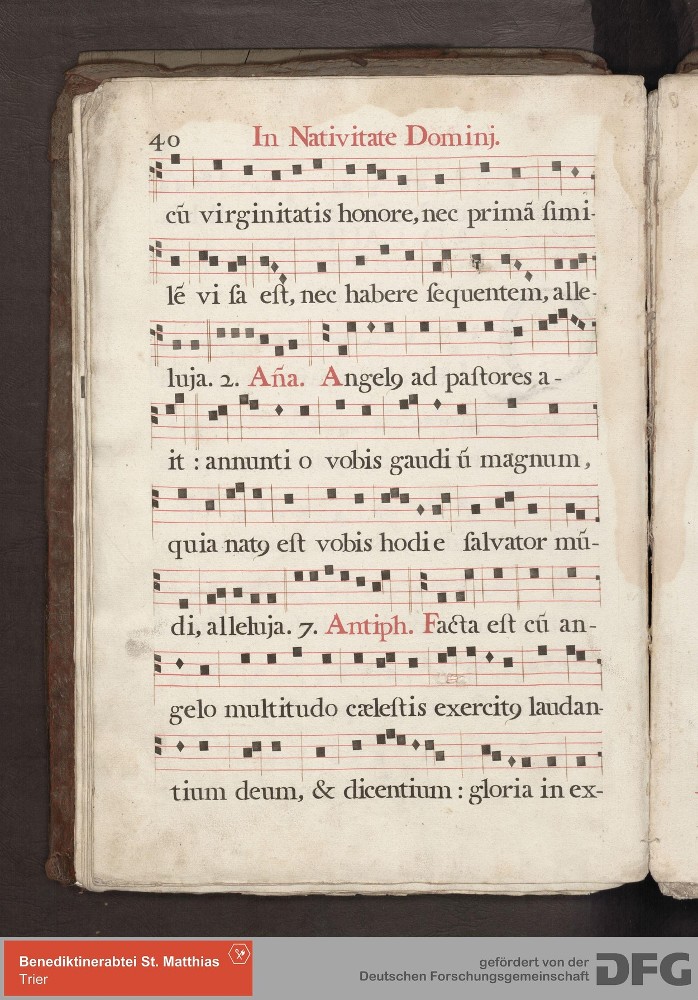 40 In Nativitate Dominj.
cũ virginitatis honore, nec primã ſimi-
lẽ vi ſa eſt, nec habere ſequentem, alle-
luja. 2. Aña. Angelꝯ ad paſtores a-
it : annunti o vobis gaudi ũ magnum,
quia natꝯ eſt vobis hodie ſalvator mũ-
di, alleluja. 7. Antiph. Facta eſt cũ an-
gelo multitudo cæleſtis exercitꝯ laudan-
tium deum, & dicentium : gloria in ex-
Benediktinerabtei St. Matthias
Trier
gefördert von der
Deutschen Forschungsgemeinschaft
DFG